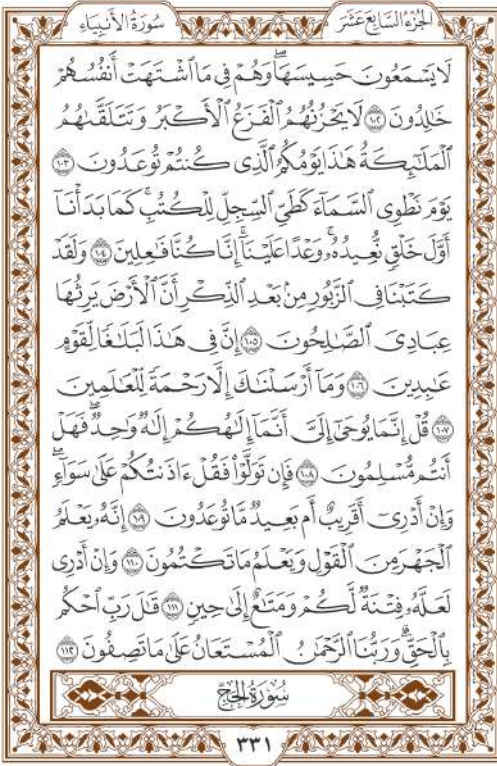 سُورَةُ الأَنبِيَاءِ
الجُزْءُ السَّابِعَ عَشَرَ
لَا يَسْمَعُونَ حَسِيسَهَا ۖ وَهُمْ فِى مَا ٱشْتَهَتْ أَنفُسُهُمْ
خَٰلِدُونَ ١٠٢ لَا يَحْزُنُهُمُ ٱلْفَزَعُ ٱلْأَكْبَرُ وَتَتَلَقَّىٰهُمُ
ٱلْمَلَٰٓئِكَةُ هَٰذَا يَوْمُكُمُ ٱلَّذِى كُنتُمْ تُوعَدُونَ ١٠٣
يَوْمَ نَطْوِى ٱلسَّمَآءَ كَطَىِّ ٱلسِّجِلِّ لِلْكُتُبِ ۚ كَمَا بَدَأْنَآ
أَوَّلَ خَلْقٍ نُّعِيدُهُۥ ۚ وَعْدًا عَلَيْنَآ ۚ إِنَّا كُنَّا فَٰعِلِينَ ١٠٤ وَلَقَدْ
كَتَبْنَا فِى ٱلزَّبُورِ مِنۢ بَعْدِ ٱلذِّكْرِ أَنَّ ٱلْأَرْضَ يَرِثُهَا
عِبَادِىَ ٱلصَّٰلِحُونَ ١٠٥ إِنَّ فِى هَٰذَا لَبَلَٰغًا لِّقَوْمٍ
عَٰبِدِينَ ١٠٦ وَمَآ أَرْسَلْنَٰكَ إِلَّا رَحْمَةً لِّلْعَٰلَمِينَ
١٠٧ قُلْ إِنَّمَا يُوحَىٰٓ إِلَىَّ أَنَّمَآ إِلَٰهُكُمْ إِلَٰهٌ وَٰحِدٌ ۖ فَهَلْ
أَنتُم مُّسْلِمُونَ ١٠٨ فَإِن تَوَلَّوْا۟ فَقُلْ ءَاذَنتُكُمْ عَلَىٰ سَوَآءٍ ۖ
وَإِنْ أَدْرِىٓ أَقَرِيبٌ أَم بَعِيدٌ مَّا تُوعَدُونَ ١٠٩ إِنَّهُۥ يَعْلَمُ
ٱلْجَهْرَ مِنَ ٱلْقَوْلِ وَيَعْلَمُ مَا تَكْتُمُونَ ١١٠ وَإِنْ أَدْرِى
لَعَلَّهُۥ فِتْنَةٌ لَّكُمْ وَمَتَٰعٌ إِلَىٰ حِينٍ ١١١ قَٰلَ رَبِّ ٱحْكُم
بِٱلْحَقِّ ۗ وَرَبُّنَا ٱلرَّحْمَٰنُ ٱلْمُسْتَعَانُ عَلَىٰ مَا تَصِفُونَ ١١٢
سُورَةُ الحَجِّ
٣٣١